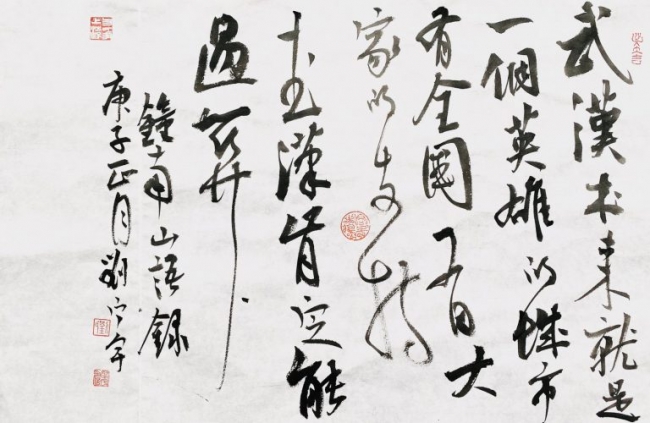 武漢本来就是
一個英雄的城市
有全國有大
家的支持
武漢肯定能
過關
鐘南山語錄
庚子正月劉宇